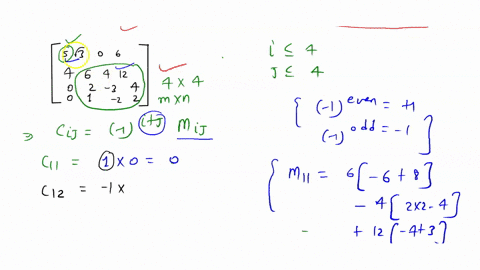 5 -3 0 6
4 6 4 12
0 2 -3 4
0 1 -2 2
4 × 4
m × n
⇒ Cij = (-1)^(i+j) Mij
C11 = 1 × 0 = 0
C12 = -1 ×
i ≤ 4
J ≤ 4
(-1)^even = +1
(-1)^odd = -1
M11 = 6[-6 + 8]
- 4[2×2 - 4]
+ 12[-4+3]